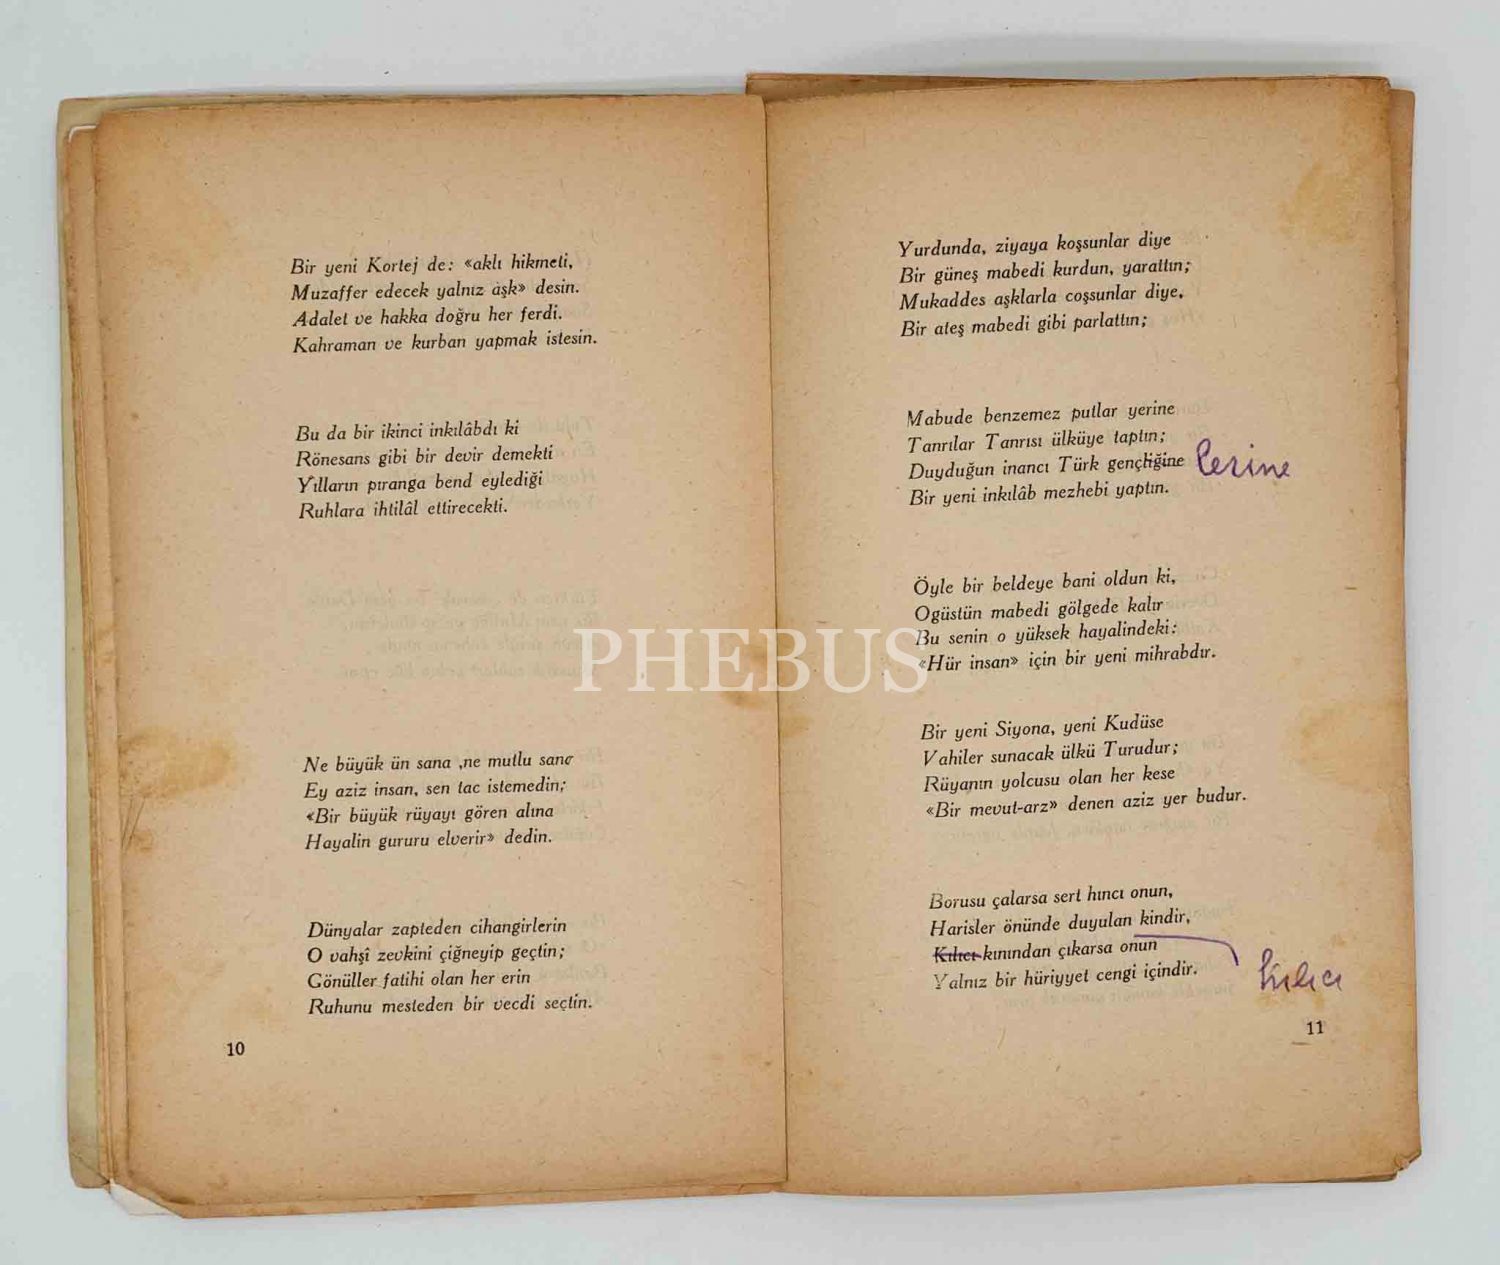 Bir yeni Kortej de: «aklı hikmeti,
Muzaffer edecek yalnız aşk» desin.
Adalet ve hakka doğru her ferdi.
Kahraman ve kurban yapmak istesin.
Bu da bir ikinci inkılâbdı ki
Rönesans gibi bir devir demekti
Yılların pıranga bend eylediği
Ruhlara ihtilâl ettirecekti.
Ne büyük ün sana ,ne mutlu sana
Ey aziz insan, sen tac istemedin;
«Bir büyük rüyayı gören alına
Hayalin gururu elverir» dedin.
Dünyalar zapteden cihangirlerin
O vahşî zevkini çiğneyip geçtin;
Gönüller fatihi olan her erin
Ruhunu mesteden bir vecdi seçtin.
10
Yurdunda, ziyaya koşsunlar diye
Bir güneş mabedi kurdun, yarattın;
Mukaddes aşklarla coşsunlar diye,
Bir ateş mabedi gibi parlattın;
Mabude benzemez putlar yerine
Tanrılar Tanrısı ülküye taptın;
Duyduğun inancı Türk gençliğine lerine
Bir yeni inkılâb mezhebi yaptın.
Öyle bir beldeye bani oldun ki,
Ogüstün mabedi gölgede kalır
Bu senin o yüksek hayalindeki:
«Hür insan» için bir yeni mihrabdır.
PHEBUS
Bir yeni Siyona, yeni Kudüse
Vahiler sunacak ülkü Turudur;
Rüyanın yolcusu olan her kese
«Bir mevut-arz» denen aziz yer budur.
Borusu çalarsa sert hıncı onun,
Harisler önünde duyulan kindir,
Kılıcı kınından çıkarsa onun
Yalnız bir hüriyyet cengi içindir.
kılıcı
11